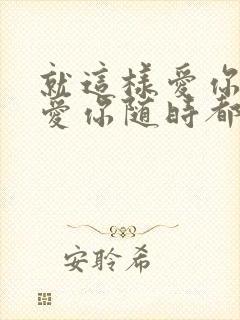 就這樣愛你
愛你隨時都
安聆希